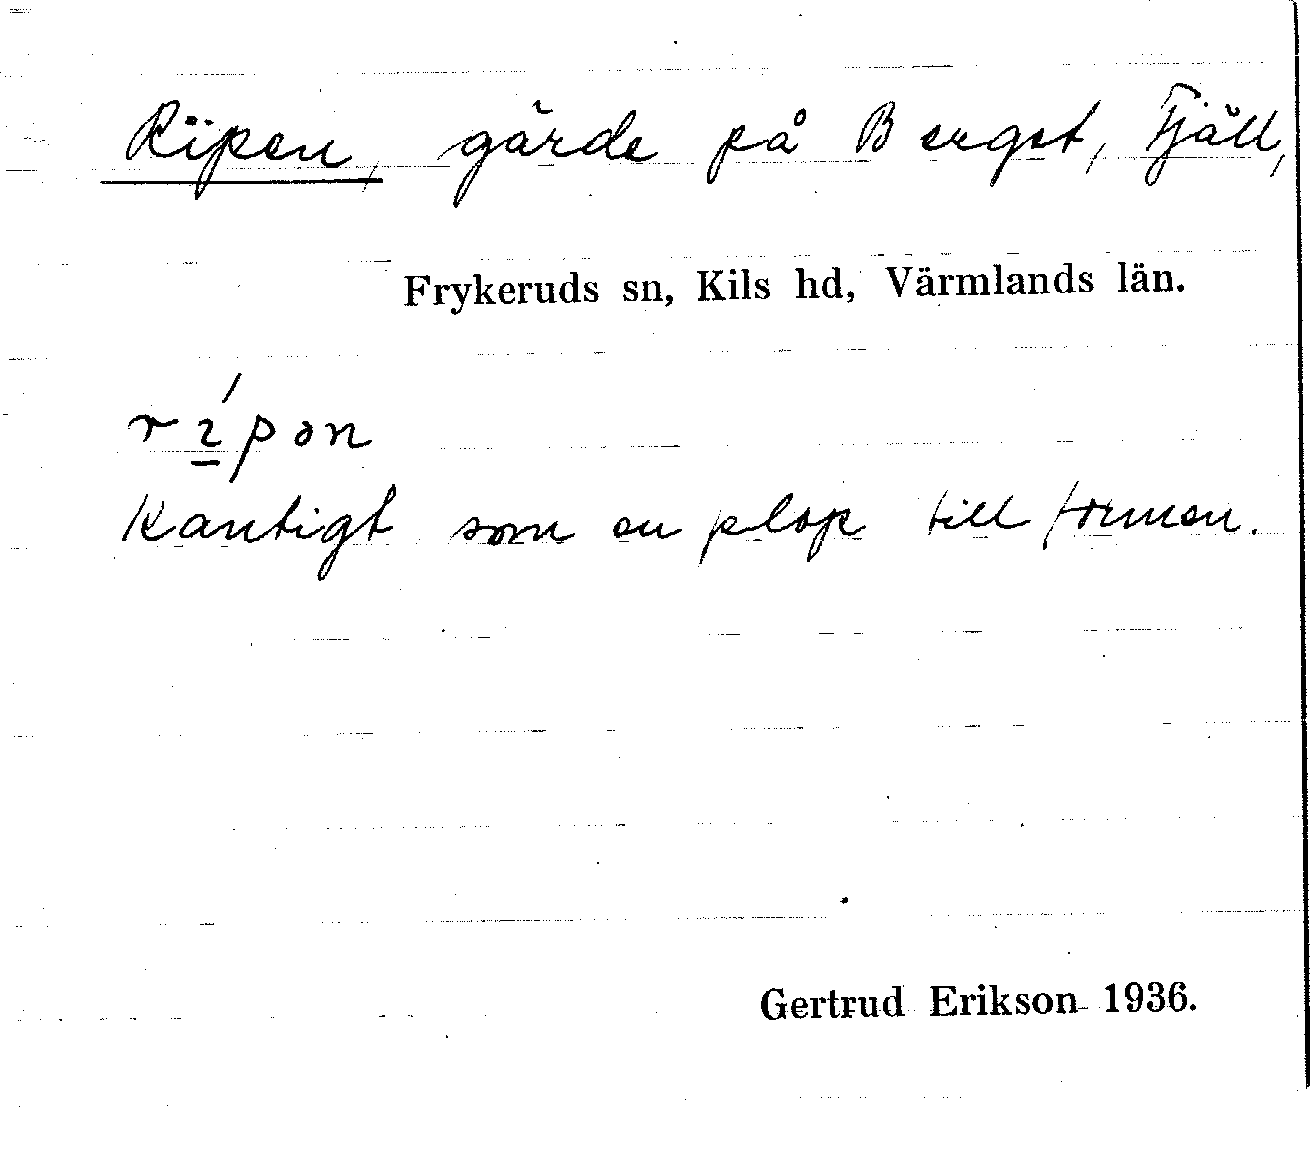 Ripen, gärde på Berget, Fjäll,
Frykeruds sn, Kils hd, Värmlands län.
Kantigt som en plop till formen.
Gertrud Erikson 1936.